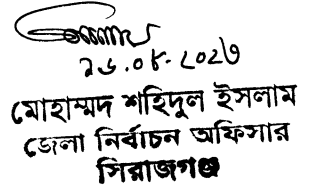 ২৬.০৮.২০২৩
মোহাম্মদ শহিদুল ইসলাম
জেলা নির্বাচন অফিসার
সিরাজগঞ্জ